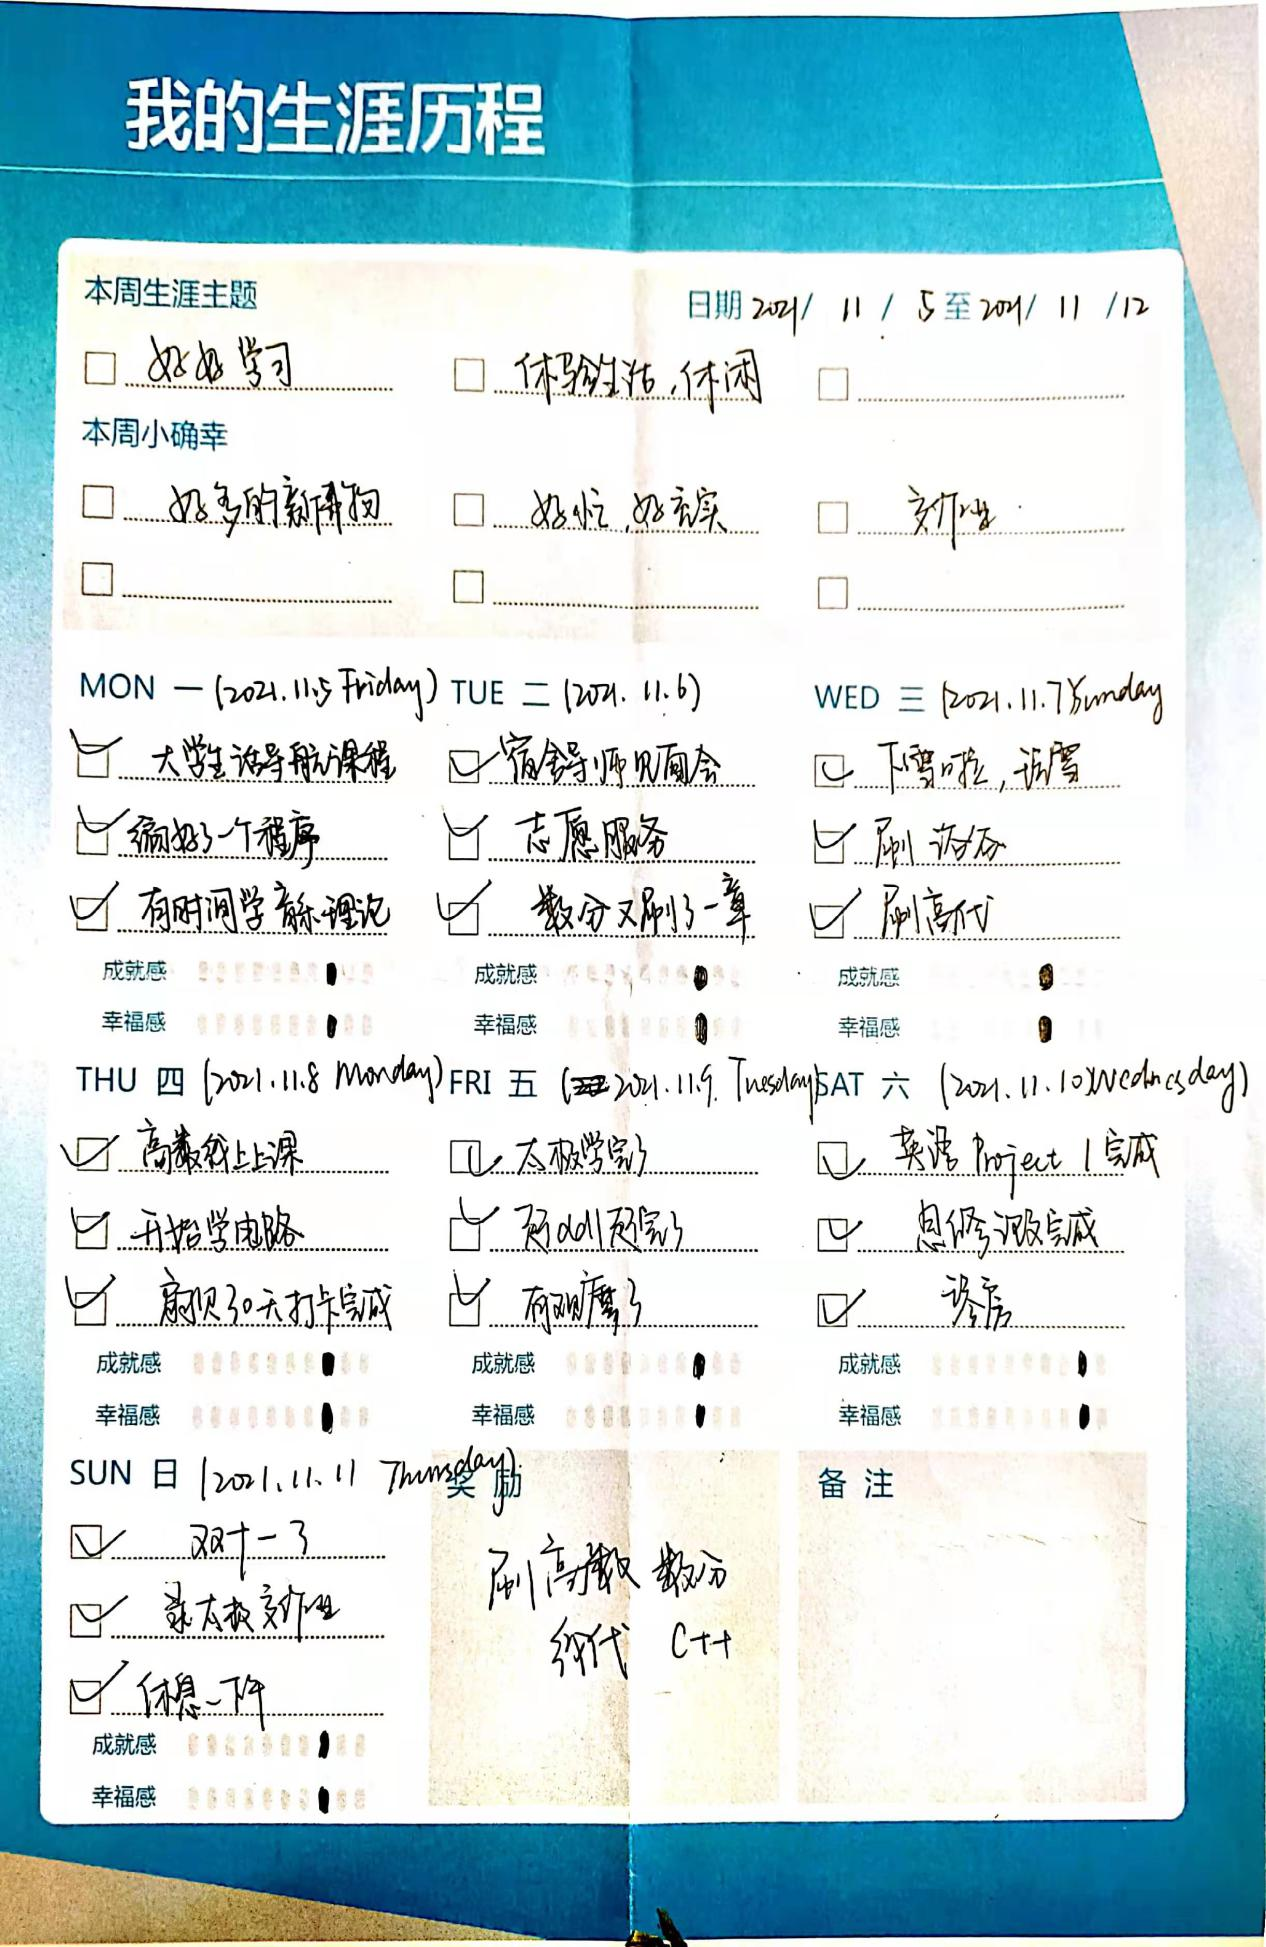 我的生涯历程
本周生涯主题
日期 2021/ 11 / 5 至 2021/ 11 /12
好好学习
体验生活,休闲
本周小确幸
好多的新事物
好忙,好充实
交作业
MON 一 (2021.11.5 Friday)
大学生活导航课程
编好了一个程序
有时间学音乐理论
成就感
幸福感
TUE 二 (2021.11.6)
宿舍导师见面会
志愿服务
数分又刷了一章
成就感
幸福感
WED 三 (2021.11.7 Sunday
下雪啦,玩雪
刷
刷高代
成就感
幸福感
THU 四 (2021.11.8 Monday)
高数线上上课
开始学电路
扇贝30天打卡完成
成就感
幸福感
FRI 五 (2021.11.9. Tuesday)
太极学完了
ddl 完了
有观摩了
成就感
幸福感
SAT 六 (2021.11.10 Wednesday)
英语 Project 1 完成
思修 完成
成就感
幸福感
SUN 日 (2021.11.11 Thursday)
双十一了
录太极交作业
休息一下午
成就感
幸福感
奖励
刷高数 数分
线代 C++
备注